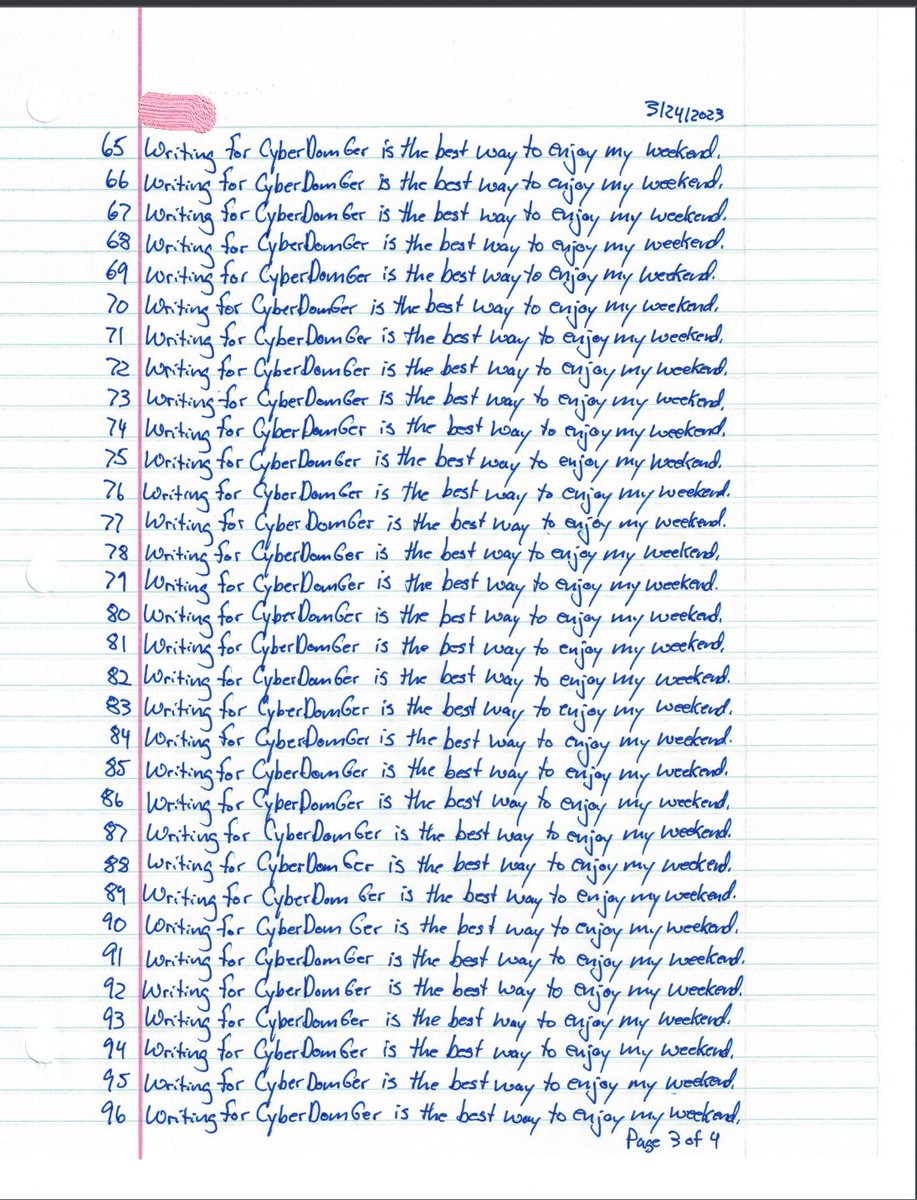 3/24/2023
65 Writing for CyberDomGer is the best way to enjoy my weekend.
66 Writing for CyberDomGer is the best way to enjoy my weekend.
67 Writing for CyberDomGer is the best way to enjoy my weekend.
68 Writing for CyberDomGer is the best way to enjoy my weekend.
69 Writing for CyberDomGer is the best way to enjoy my weekend.
70 Writing for CyberDomGer is the best way to enjoy my weekend.
71 Writing for CyberDomGer is the best way to enjoy my weekend.
72 Writing for CyberDomGer is the best way to enjoy my weekend.
73 Writing for CyberDomGer is the best way to enjoy my weekend.
74 Writing for CyberDomGer is the best way to enjoy my weekend.
75 Writing for CyberDomGer is the best way to enjoy my weekend.
76 Writing for CyberDomGer is the best way to enjoy my weekend.
77 Writing for CyberDomGer is the best way to enjoy my weekend.
78 Writing for CyberDomGer is the best way to enjoy my weekend.
79 Writing for CyberDomGer is the best way to enjoy my weekend.
80 Writing for CyberDomGer is the best way to enjoy my weekend.
81 Writing for CyberDomGer is the best way to enjoy my weekend.
82 Writing for CyberDomGer is the best way to enjoy my weekend.
83 Writing for CyberDomGer is the best way to enjoy my weekend.
84 Writing for CyberDomGer is the best way to enjoy my weekend.
85 Writing for CyberDomGer is the best way to enjoy my weekend.
86 Writing for CyberDomGer is the best way to enjoy my weekend.
87 Writing for CyberDomGer is the best way to enjoy my weekend.
88 Writing for CyberDomGer is the best way to enjoy my weekend.
89 Writing for CyberDomGer is the best way to enjoy my weekend.
90 Writing for CyberDomGer is the best way to enjoy my weekend.
91 Writing for CyberDomGer is the best way to enjoy my weekend.
92 Writing for CyberDomGer is the best way to enjoy my weekend.
93 Writing for CyberDomGer is the best way to enjoy my weekend.
94 Writing for CyberDomGer is the best way to enjoy my weekend.
95 Writing for CyberDomGer is the best way to enjoy my weekend.
96 Writing for CyberDomGer is the best way to enjoy my weekend.
Page 3 of 4